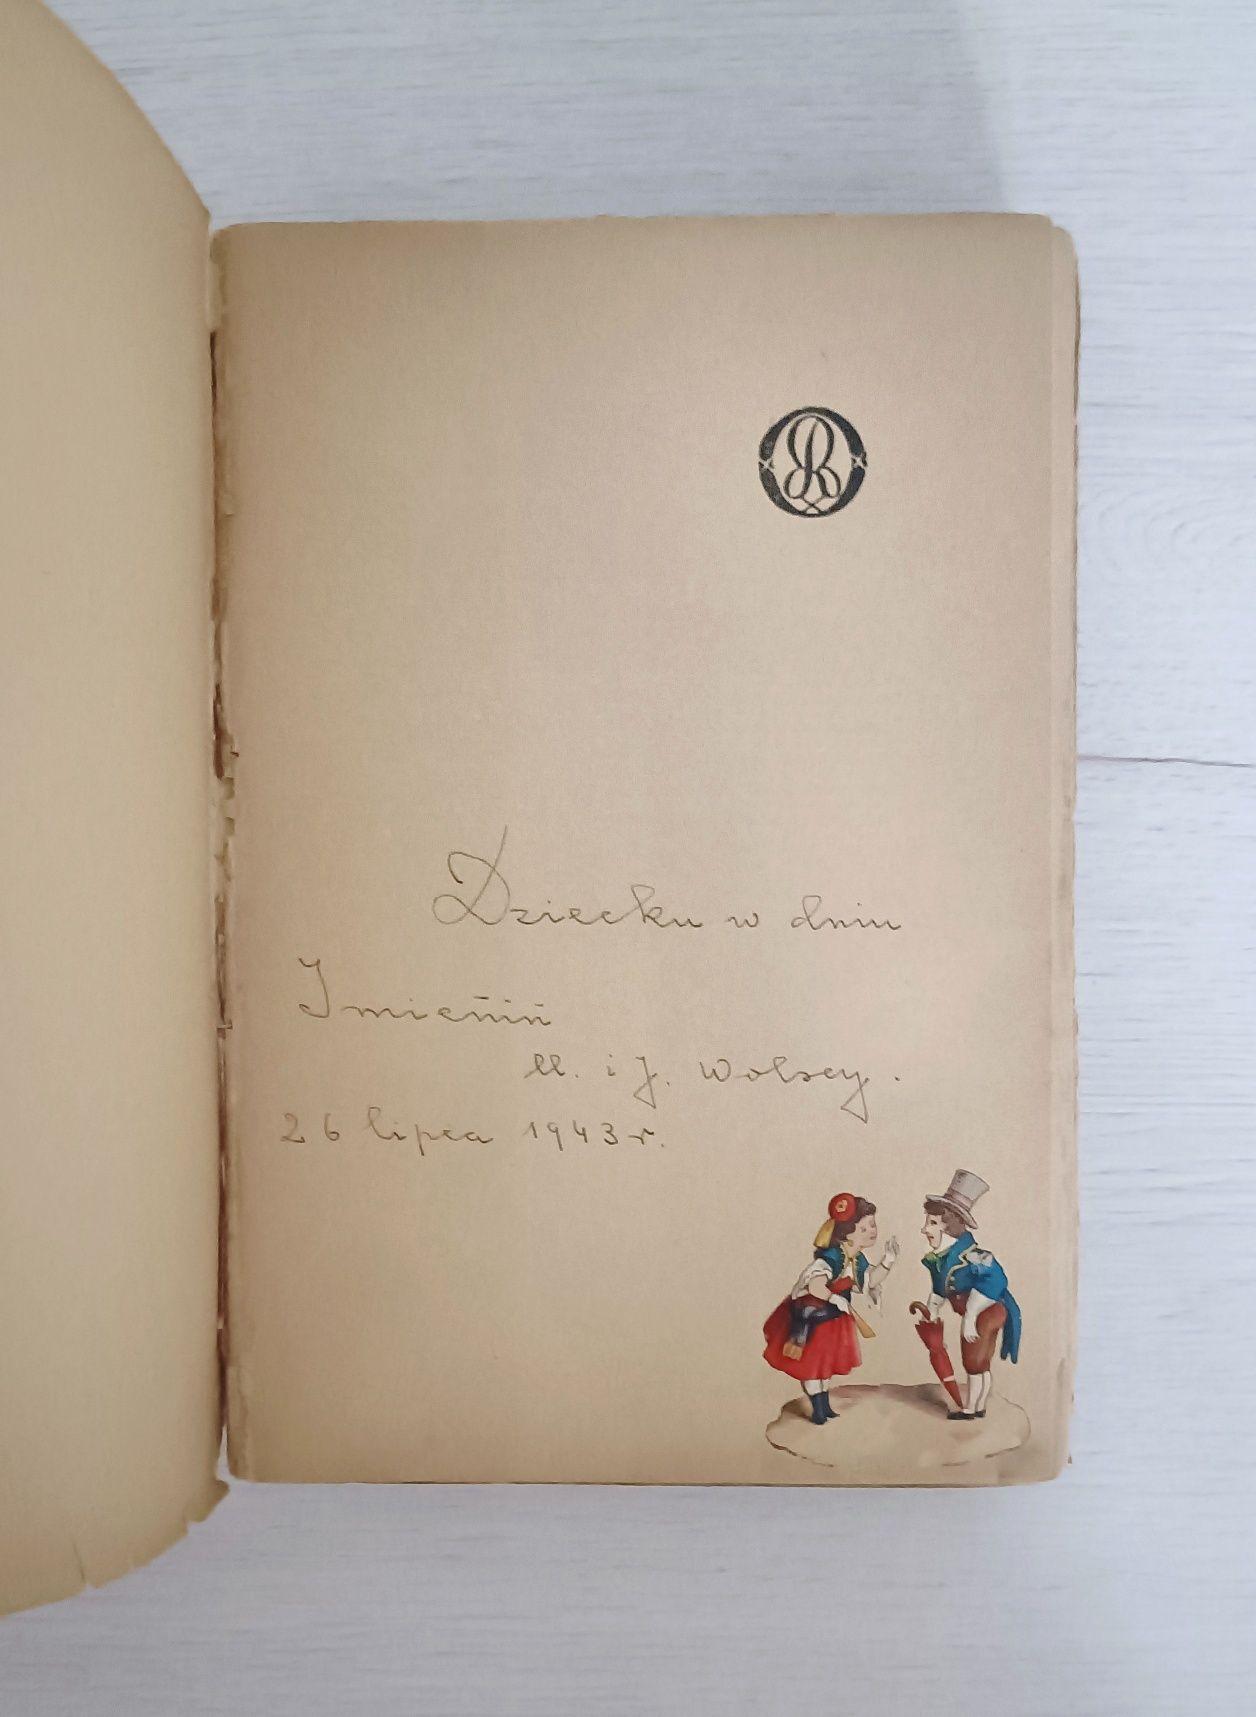 Dziecku w dniu
Imieńiń
M. i J. Wolscy.
26 lipca 1943 r.